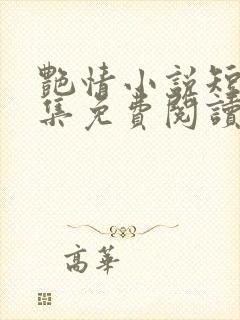 艷情小說短
集免費閱讀
高華